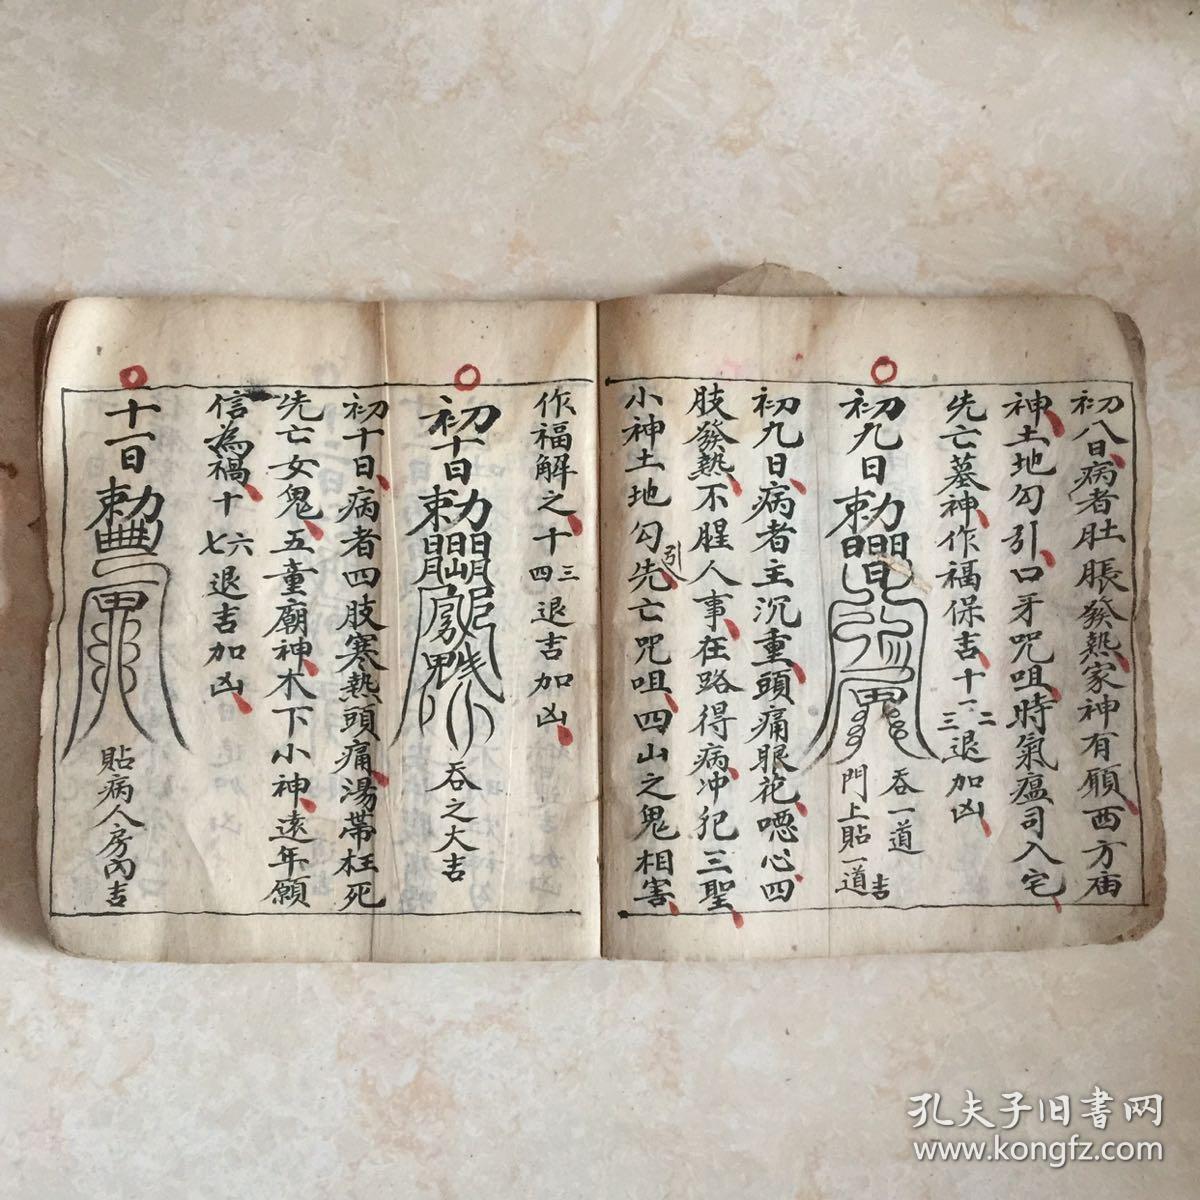 初八日病者肚脹發熱家神有願西方庙
神土地勾引口牙咒咀時氣瘟司入宅
先亡墓神作福保吉十一二三退加凶
初九日勅
吞一道
門上貼一道吉
初九日病者主沉重頭痛眼花噁心四
肢發熱不腥人事在路得病冲犯三聖
小神土地勾引先亡咒咀四山之鬼相害
作福解之十三四退吉加凶
初十日勅
吞之大吉
初十日病者四肢寒熱頭痛湯帶枉死
先亡女鬼五童廟神木下小神遠年願
信為禍十六七退吉加凶
十一日勅
貼病人房內吉
孔夫子旧書网
www.kongfz.com